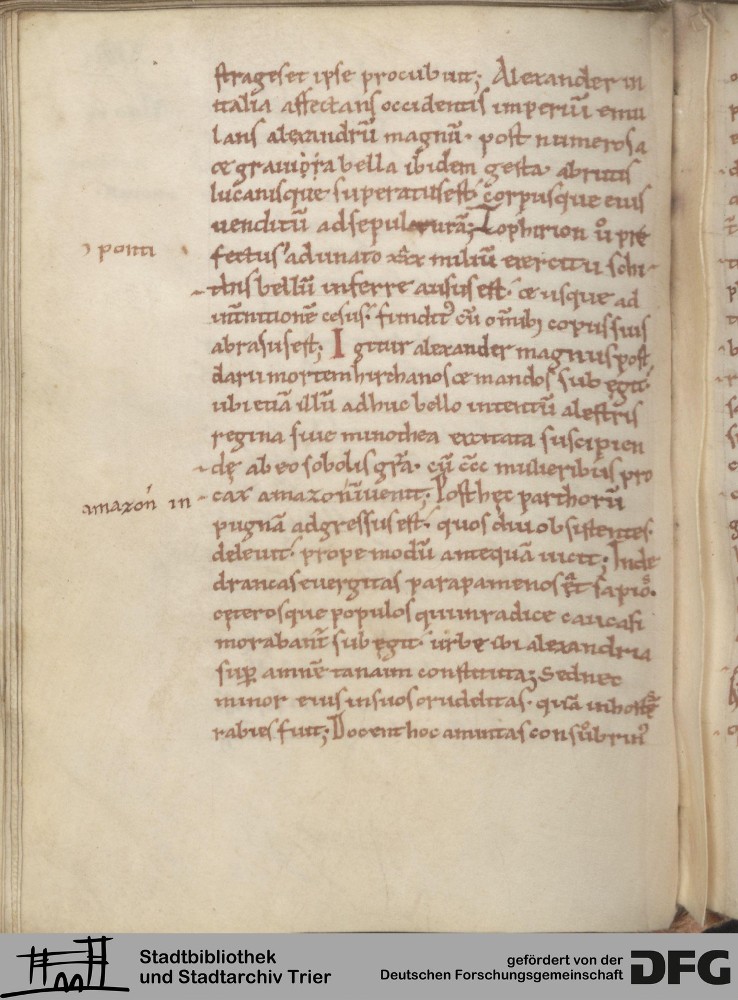 strages et ipse procubuit; Alexander in
italia affectans occidentis imperiū emu
lans alexandrū magnū· post numerosa
& grauiora bella ibidem gesta· abrutiis
lucanisque superatus est· corpusque eius
uenditū ad sepulturā; Zophirion ů pre
ɔ ponti
fectus adunato xxx miliū exercitu schi
this bellū inferre ausus est· & usque ad
int̄nitionē cesus· fundit᾽ cū om̄ib; copiis suis
abrasus est; Igitur alexander magnus post
darii mortem hirchanos & mandos subegit·
ubi etiā illū adhuc bello intentū alestris
regina siue minothea excitata suscipien
dę ab eo sobolis gr̄a· cū ccc mulieribus pro
amazon in
cax amazonū inuenit; Post hęc parthorū
pugnā adgressus est· quos diu obsistentes·
deleuit· prope modū antequā uicit; Inde
drancas euergitas parapamenos
ceterosque populos qui in radice caucasi
morabant̄ subegit· urbe ibi alexandria
sup amnē tanaim constituta; Sed nec
minor eius in suos crudelitas· quā in hostē
rabies fuit; Docent hoc amintas
Stadtbibliothek
und Stadtarchiv Trier
gefördert von der
Deutschen Forschungsgemeinschaft
DFG